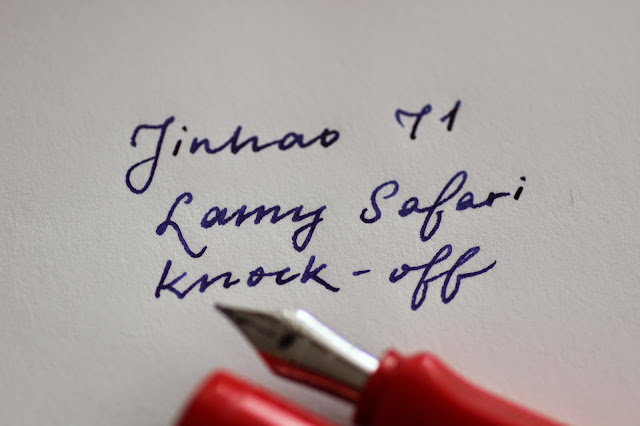 Jinhao 71
Lamy Safari
knock-off